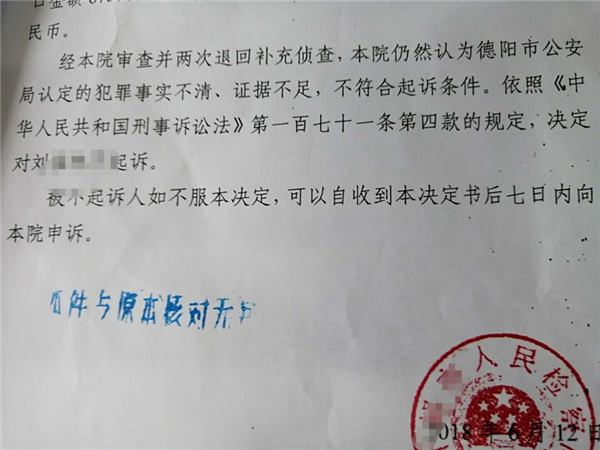 民币。
经本院审查并两次退回补充侦查，本院仍然认为德阳市公安
局认定的犯罪事实不清、证据不足，不符合起诉条件。依照《中
华人民共和国刑事诉讼法》第一百七十一条第四款的规定，决定
对刘 起诉。
被不起诉人如不服本决定，可以自收到本决定书后七日内向
本院申诉。
本件与原本核对无异
人民检察
2018年6月12日